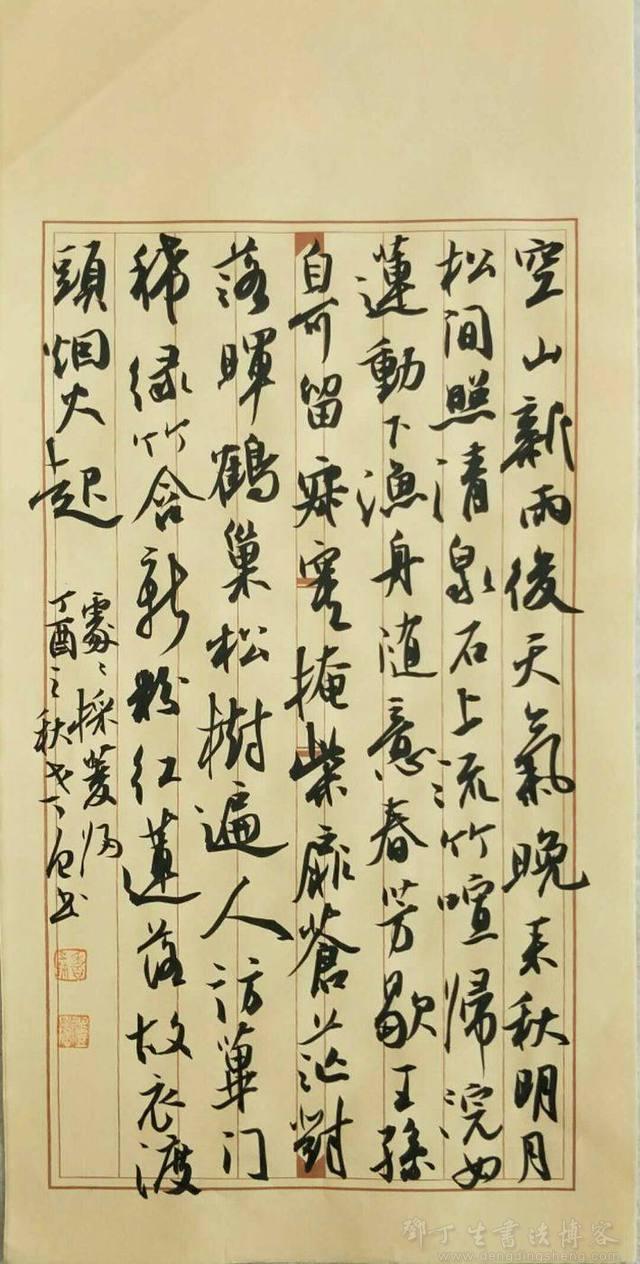 空山新雨後天氣晚来秋明月
松間照清泉石上流竹喧歸浣女
蓮動下漁舟随意春芳歇王孫
自可留寂寞掩柴扉蒼茫對
落暉鶴巢松樹遍人訪蓽门
稀绿竹含新粉红蓮落故衣渡
頭烟火起
處〻採菱归
丁酉之秋丁生书
鄧丁生書法博客
www.dengdingsheng.com